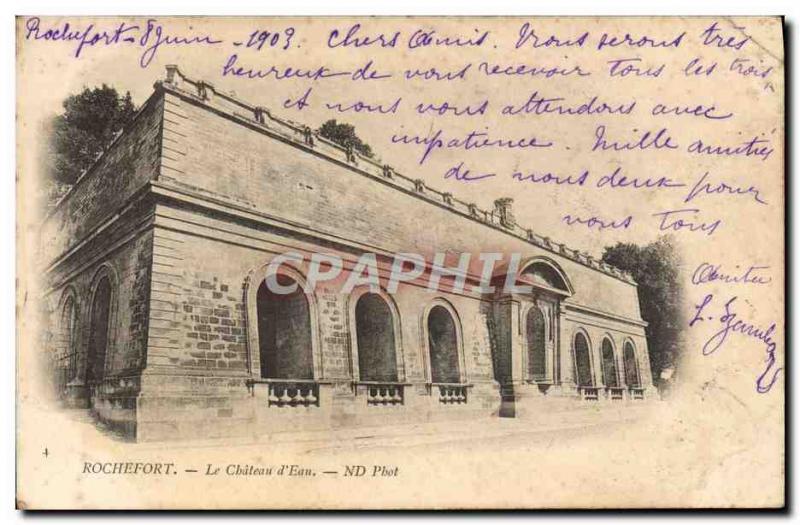 Rochefort-8 Juin -1903. Chers Amis. Nous serons très
heureux de vous recevoir tous les trois
et nous vous attendons avec
impatience. Mille amitiés
de nous deux pour
vous tous
CPARPHIL
4
ROCHEFORT. — Le Château d'Eau. — ND Phot